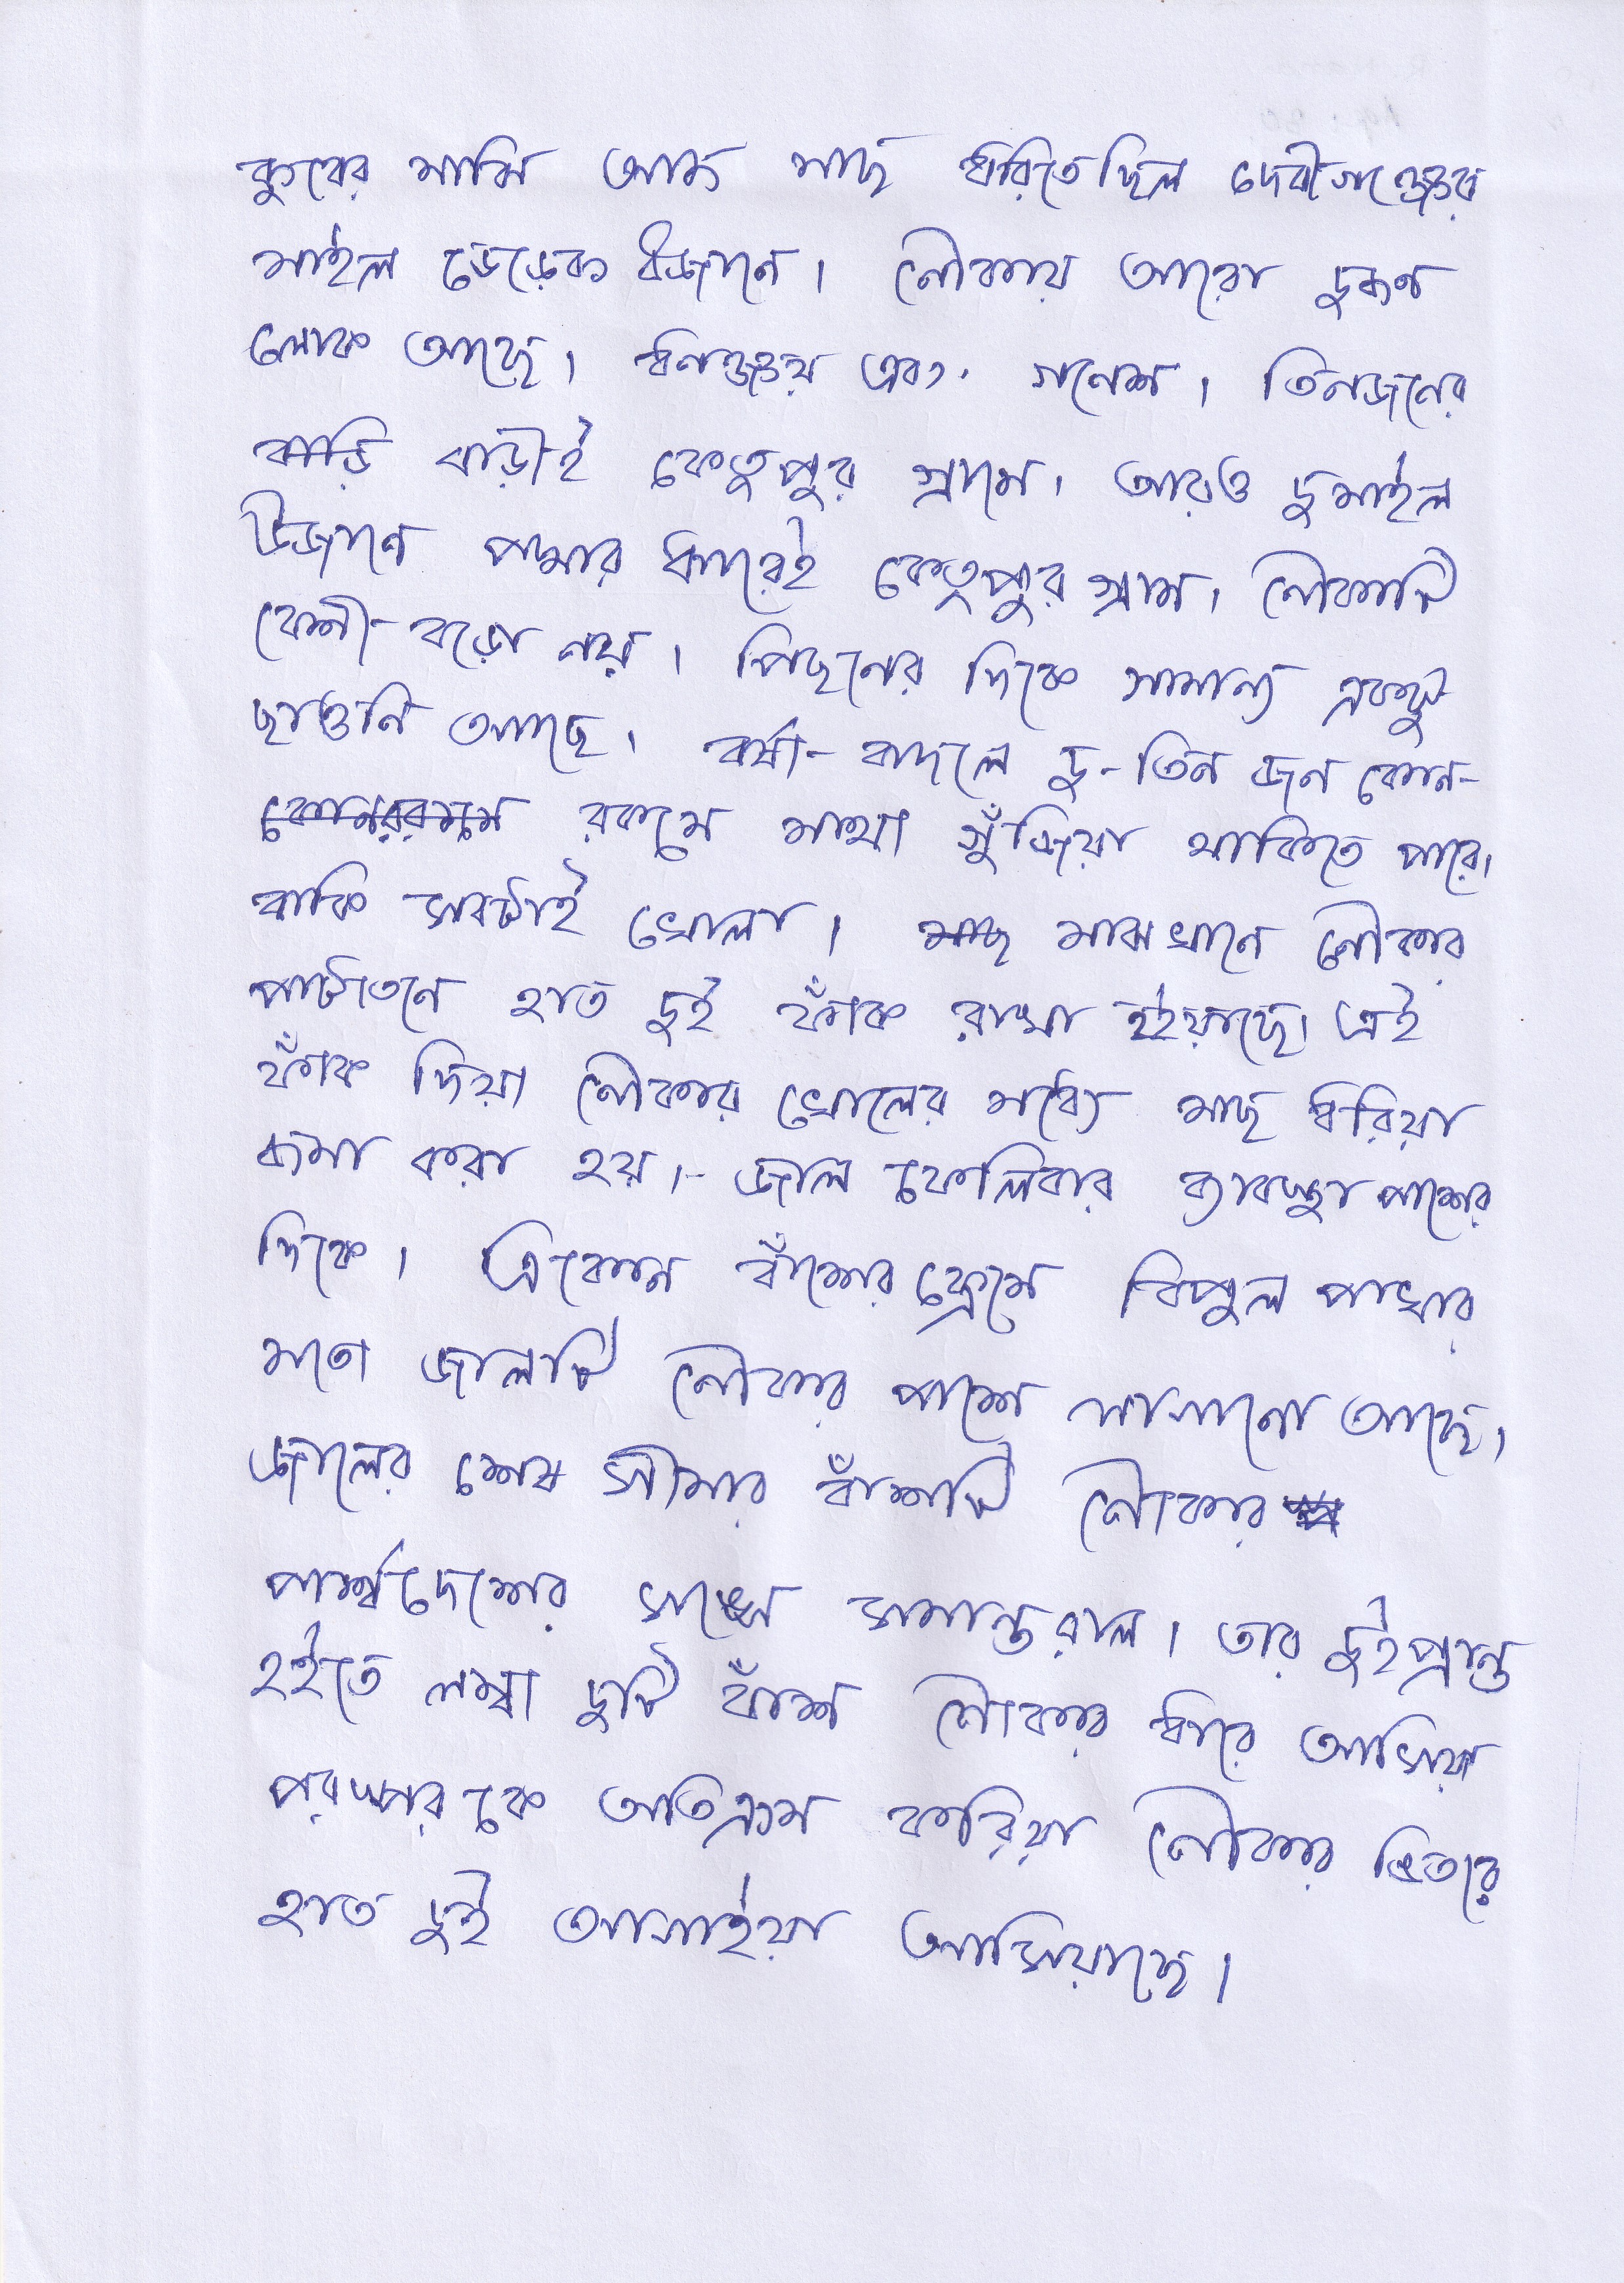 কুবের মাঝি আজ মাছ ধরিতেছিল দেবীগঞ্জের
মাইল দেড়েক উজানে। নৌকায় আরো দুজন
লোক আছে। ধনঞ্জয় এবং গনেশ। তিনজনের
বাড়ি বাড়ীই কেতুপুর গ্রামে। আরও দুমাইল
উজানে পদ্মার ধারেই কেতুপুর গ্রাম। নৌকাটি
বেশী বড়ো নয়। পিছনের দিকে সামান্য একটু
ছাওনি আছে। বর্ষা-বাদলে দু-তিন জন কোন-
রকমে মাথা গুঁজিয়া থাকিতে পারে।
বাকি সবটাই খোলা। মাছ মাঝখানে নৌকার
পাটাতনে হাত দুই ফাঁক রাখা হইয়াছে। এই
ফাঁক দিয়া নৌকার খোলের মধ্যে মাছ ধরিয়া
জমা করা হয়। জাল ফেলিবার ব্যাবস্থা পাশের
দিকে। ত্রিকোন বাঁশের ফ্রেমে বিপুল পাখার
মতো জালটি নৌকার পাশে লাগানো আছে।
জালের শেষ সীমার বাঁশটি নৌকার
পার্শ্বদেশের সঙ্গে সমান্তরাল। তার দুইপ্রান্ত
হইতে লম্বা দুটি বাঁশ নৌকার ধারে আসিয়া
পরস্পরকে অতিক্রম করিয়া নৌকার ভিতরে
হাত দুই আগাইয়া আসিয়াছে।